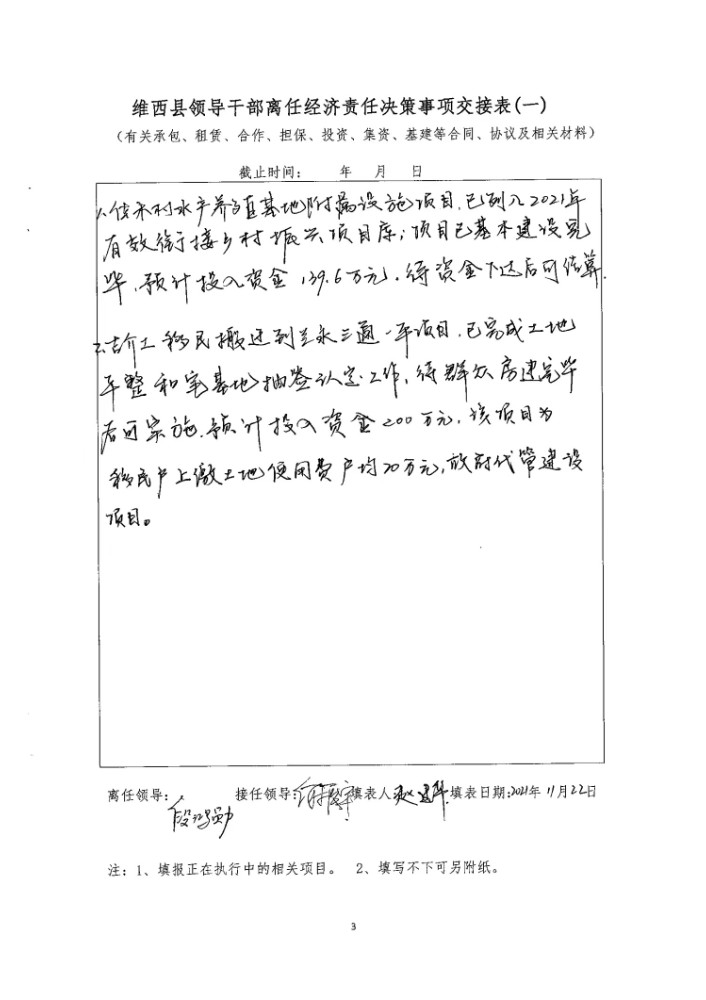 维西县领导干部离任经济责任决策事项交接表(一)
（有关承包、租赁、合作、担保、投资、集资、基建等合同、协议及相关材料）
截止时间： 年 月 日
1.佳禾村水产养殖基地附属设施项目，已列入2021年
有效衔接乡村振兴项目库；项目已基本建设完
毕，预计投入资金139.6万元，待资金下达后可结算。
2.吉介土移民搬迁到兰永三通一平项目，已完成土地
平整和宅基地抽签认定工作，待群众房建完毕
后可实施，预计投入资金200万元，该项目为
移民户上缴土地使用费户均20万元，政府代管建设
项目。
离任领导： 接任领导： 填表人 填表日期：2021年11月22日
段鸿勋
注：1、填报正在执行中的相关项目。 2、填写不下可另附纸。
3